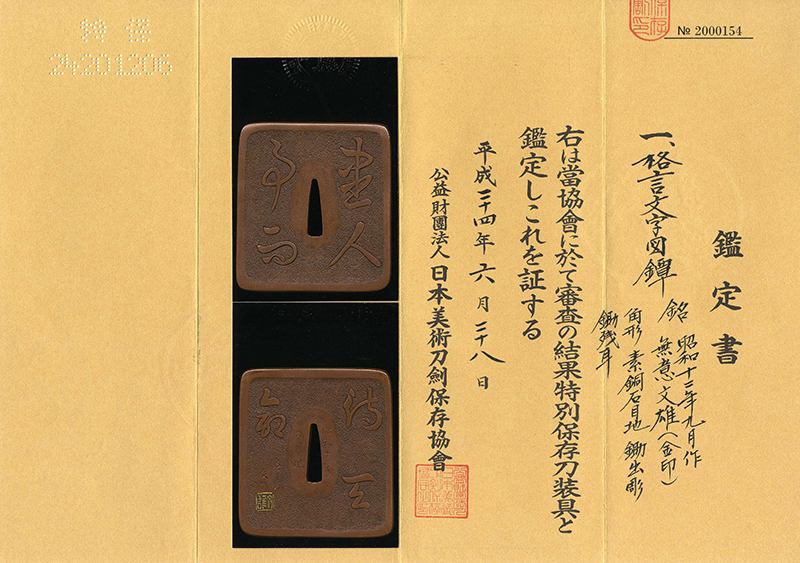 № 2000154
鑑定書
一、格言文字図鐔
銘 昭和十二年九月作
無意文雄(金印)
角形 素銅石目地 鋤出彫
鋤残耳
右は當協會に於て審査の結果特別保存刀装具と
鑑定しこれを証する
平成二十四年六月二十八日
公益財團法人 日本美術刀劍保存協會
24201206
尽人
事而
待天
命